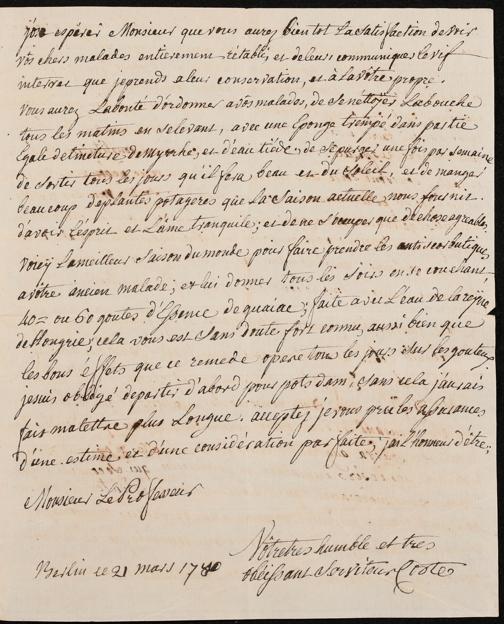 j'ose espérer Monsieur que vous aurez bientot la satisfaction de voir
vos chers malades entierement rétablis, et de leur communiquer le vif
interest que je prends a leur conservation, et à la vôtre propre.
vous aurez la bonté d'ordonner a vos malades, de se nettoyer la bouche
tous les matins en se levant, avec une Eponge trempée dans partie
Egale de tincture de Myrrhe, et d'eau tiéde, de se purger une fois par semaine
de sortir tous les jours qu'il fera beau et du soleil, et de manger
beaucoup de plantes potageres que la saison actuelle nous fournit.
d'avoir l'esprit et l'ame tranquile; et de ne s'occuper que de chose agreables,
voicy la meilleur saison du monde pour faire prendre les antiscorbutiques
a vôtre ancien malade; et lui donner tous les soirs en se couchant
40 = ou 60 goutes d'Essence de guaiac; faite avec l'eau de la reine
de Hongrie, cela vous est sans doute fort connu, aussi bien que
les bons effets que ce remede opere tous les jours sur les gouteux
je suis obligé de partir d'abord pour potsdam, sans cela j'aurais
fais ma lettre plus longue. acceptez je vous prie les assurances
d'une estime et d'une considération parfaite, j'ai l'honneur d'être,
Monsieur Le Professeur
Vôtre tres humble et tres
Berlin ce 21 mars 1780
obeissant serviteur